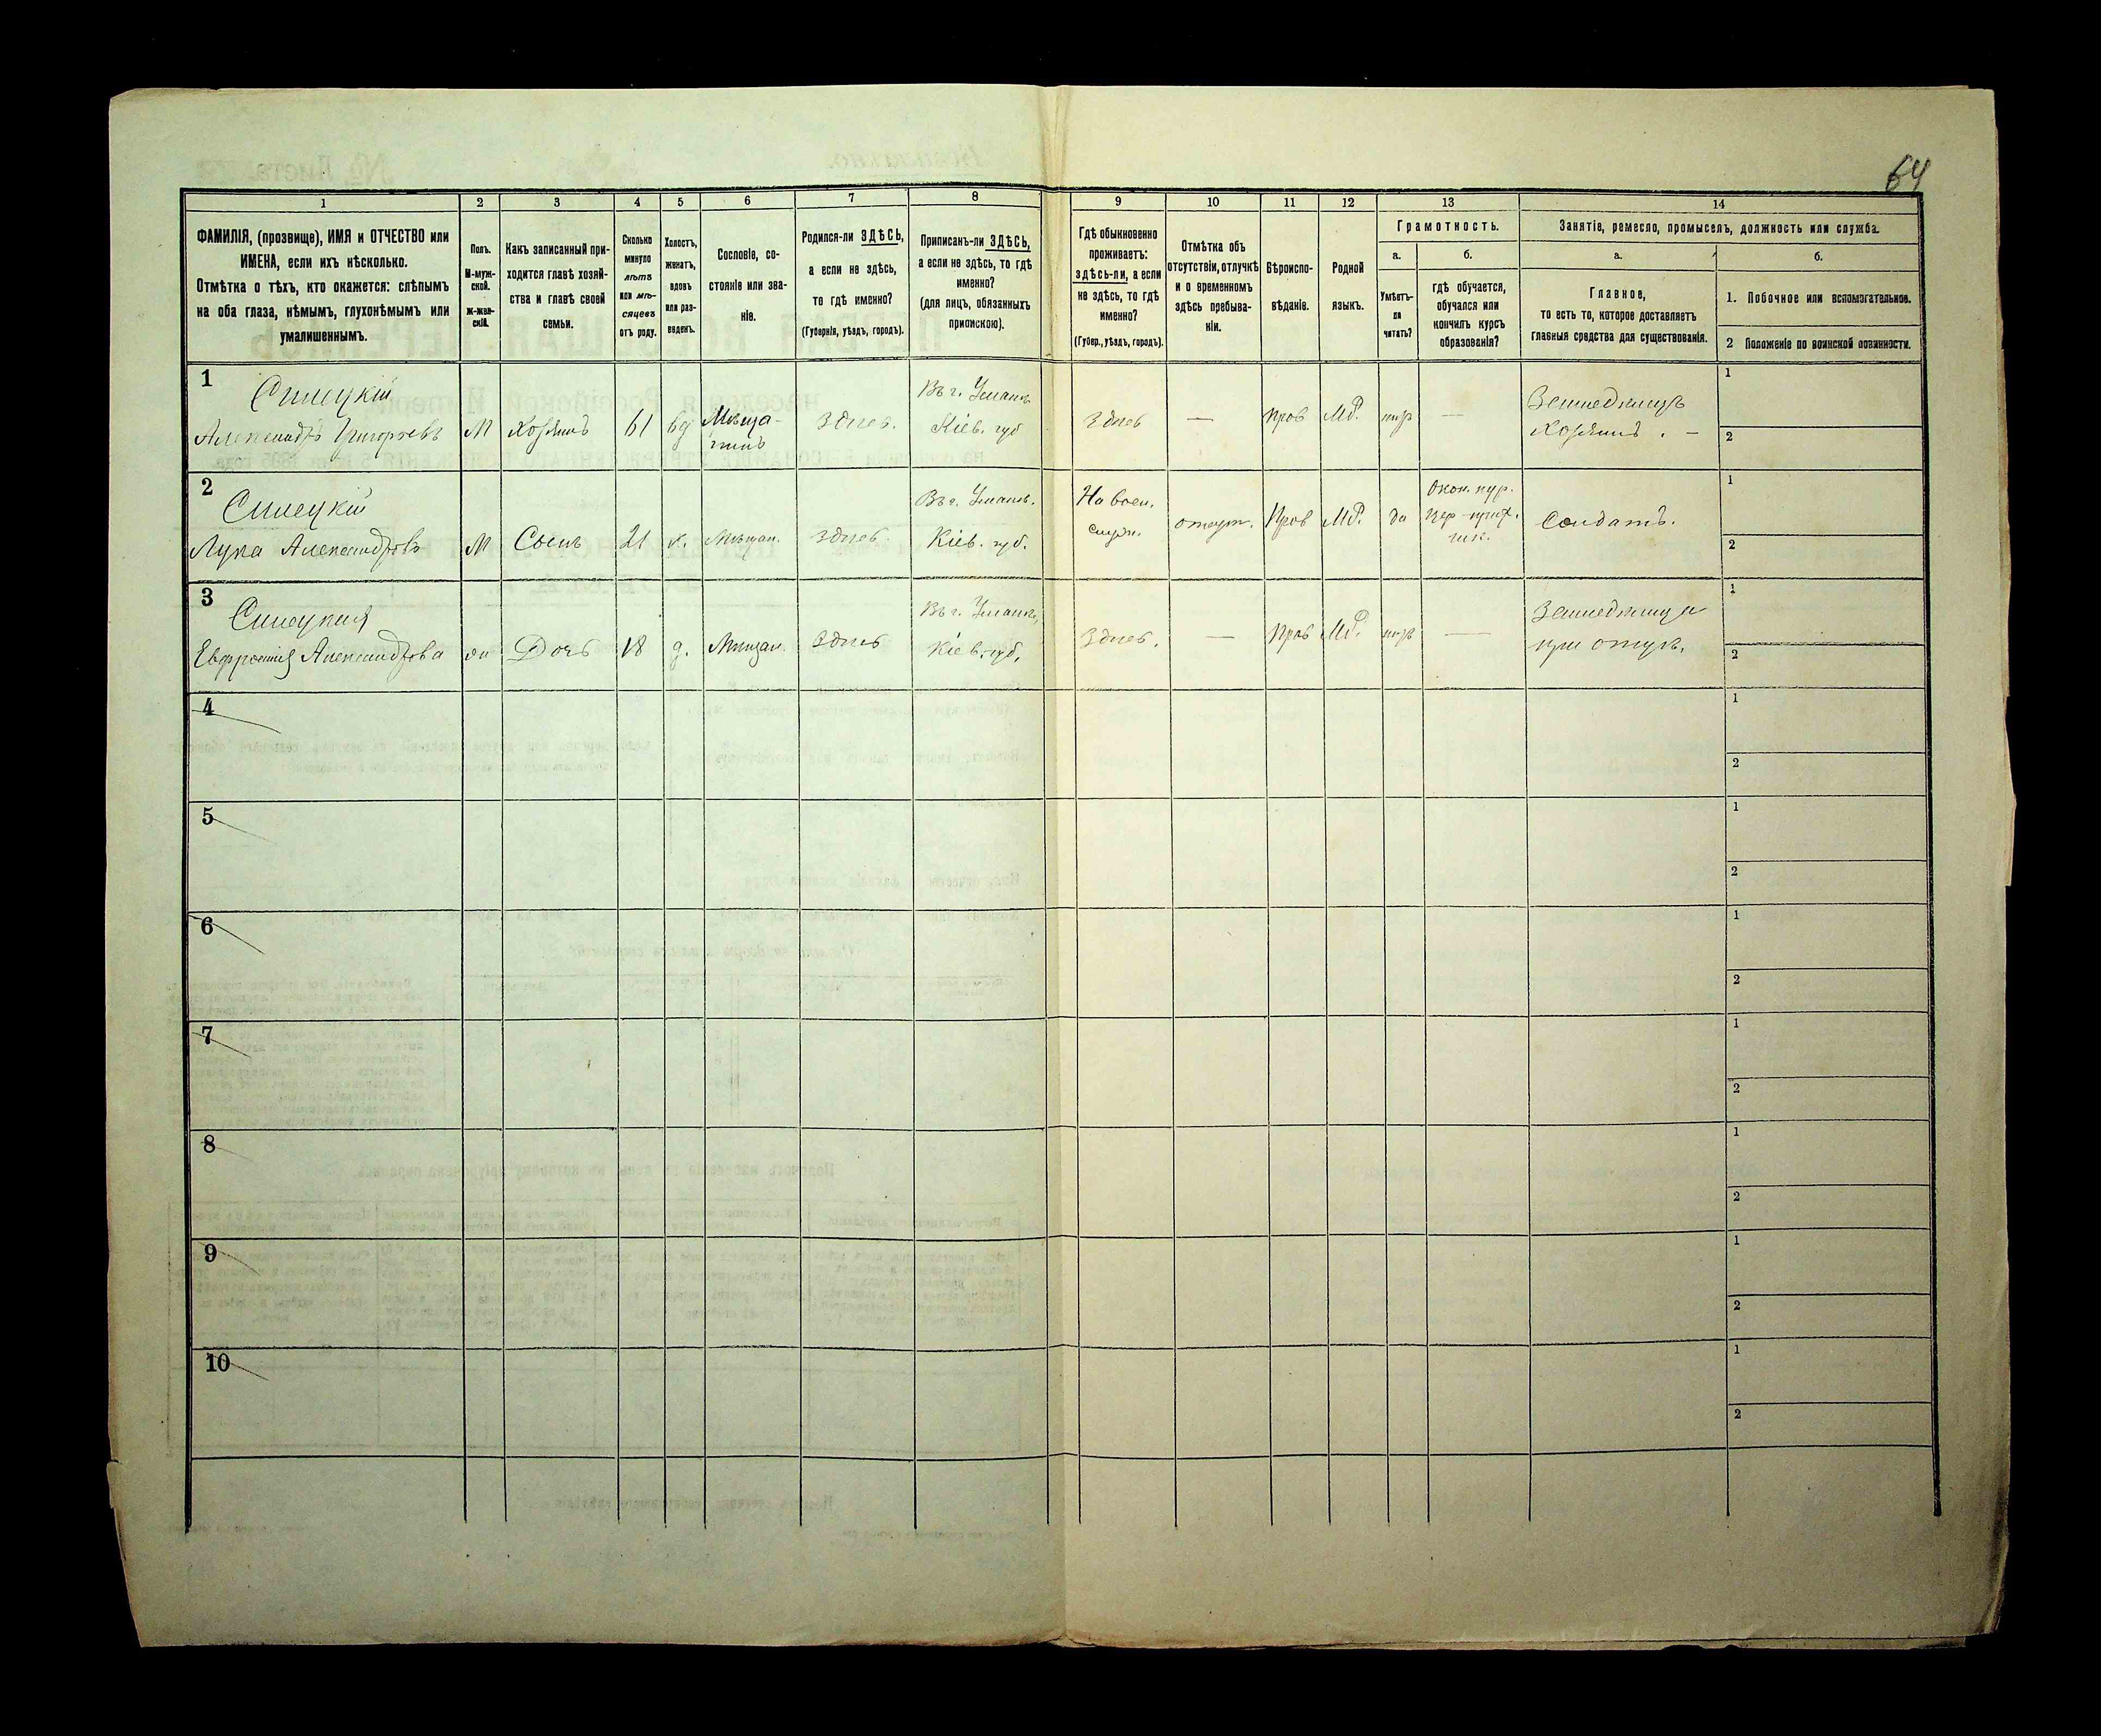 64
1 2 3 4 5 6 7 8 9 10 11 12 13 14
ФАМИЛІЯ, (прозвище), ИМЯ и ОТЧЕСТВО или
ИМЕНА, если ихъ нѣсколько.
Отмѣтка о тѣхъ, кто окажется: слѣпымъ
на оба глаза, нѣмымъ, глухонѣмымъ или
умалишеннымъ.
Полъ.
М-муж-
ской.
ж-жен-
скій.
Какъ записанный при-
ходится главѣ хозяй-
ства и главѣ своей
семьи.
Сколько
минуло
лѣтъ
или мѣ-
сяцевъ
отъ роду.
Холостъ,
женатъ,
вдовъ
или раз-
веденъ.
Сословіе, со-
стояніе или зва-
ніе.
Родился-ли ЗДѢСЬ,
а если не здѣсь,
то гдѣ именно?
(Губернія, уѣздъ, городъ).
Приписанъ-ли ЗДѢСЬ,
а если не здѣсь, то гдѣ
именно?
(для лицъ, обязанныхъ
припискою).
Гдѣ обыкновенно
проживаетъ:
здѣсь-ли, а если
не здѣсь, то гдѣ
именно?
(Губер., уѣздъ, городъ).
Отмѣтка объ
отсутствіи, отлучкѣ
и о временномъ
здѣсь пребыва-
ніи.
Вѣроиспо-
вѣданіе.
Родной
языкъ.
Грамотность.
а.
Умѣетъ-
ли
читать?
б.
гдѣ обучается,
обучался или
кончилъ курсъ
образованія?
Занятіе, ремесло, промыселъ, должность или служба.
а.
Главное,
то есть то, которое доставляетъ
главныя средства для существованія.
б.
1. Побочное или вспомогательное.
2 Положеніе по воинской повинности.
1
Силецкій
Александръ Григорьевъ
М
Хозяинъ
61
вд
Мѣща-
нинъ
Здѣсь.
Въ г. Умань
Кіев. губ
Здѣсь
—
Прав
Мр.
нѣтъ
—
Земледѣлецъ
Хозяинъ. —
1
2
2
Силецкій
Лука Александровъ
М
Сынъ
21
х.
Мѣщан.
Здѣсь.
Въ г. Умань.
Кіев. губ.
На воен.
служ.
отсут.
Прав
Мр.
да
Окон. кур.
Цер-прих.
шк.
Солдатъ.
1
2
3
Силецкая
Евфросинія Александрова
ж
Дочь
18
д.
Мѣщан.
Здѣсь
Въ г. Умань,
Кіев. губ.
Здѣсь.
—
Прав
Мр.
нѣтъ
—
Земледѣлица
при отцѣ.
1
2
4
1
2
5
1
2
6
1
2
7
1
2
8
1
2
9
1
2
10
1
2